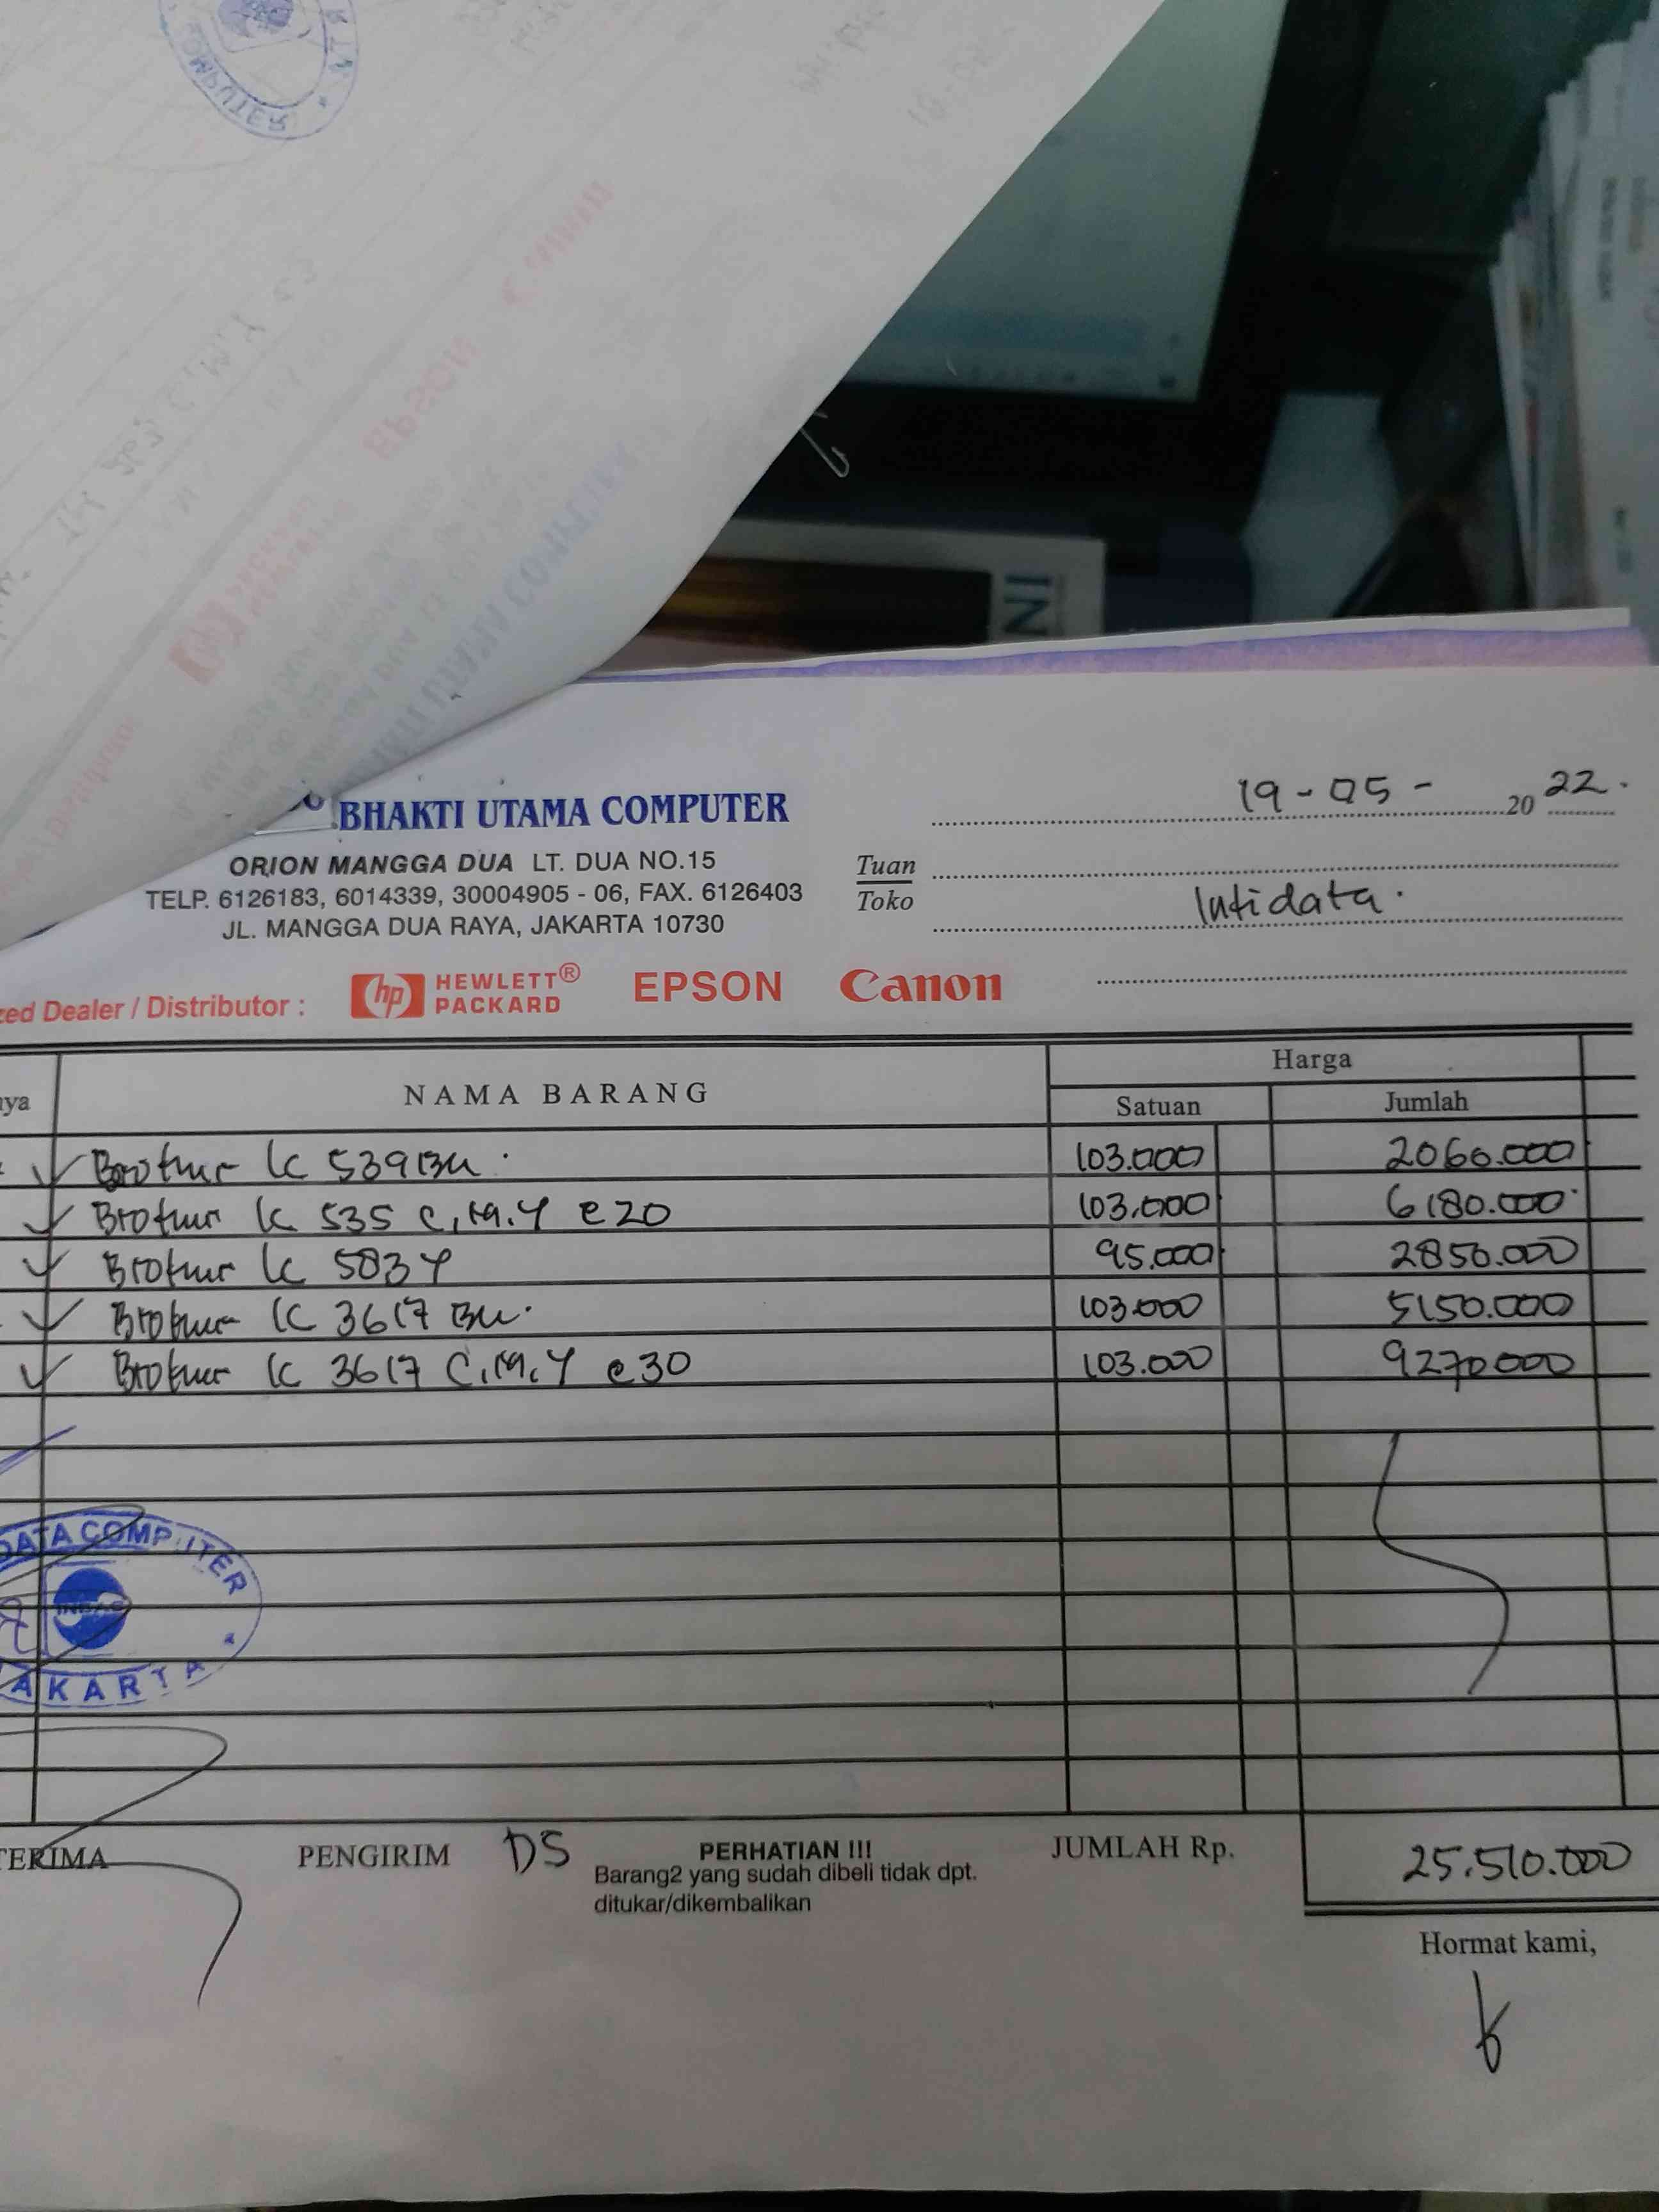 BHAKTI UTAMA COMPUTER
ORION MANGGA DUA LT. DUA NO.15
TELP. 6126183, 6014339, 30004905 - 06, FAX. 6126403
JL. MANGGA DUA RAYA, JAKARTA 10730
19-05- 2022.
Tuan
Toko
Intidata.
zed Dealer / Distributor : hp HEWLETT® PACKARD EPSON Canon
nya NAMA BARANG Harga
Satuan Jumlah
Brother lc 539 Bu. 103.000 2060.000
Brother lc 535 C,M,Y @20 103.000 6180.000
Brother lc 583 Y 95.000 2850.000
Brother lc 3617 Bu. 103.000 5150.000
Brother lc 3617 C,M,Y @30 103.000 9270.000
DATA COMPUTER
AKARTA
TERIMA PENGIRIM DS
PERHATIAN !!!
Barang2 yang sudah dibeli tidak dpt.
ditukar/dikembalikan
JUMLAH Rp. 25.510.000
Hormat kami,
COMPUTER
EPSON
INI